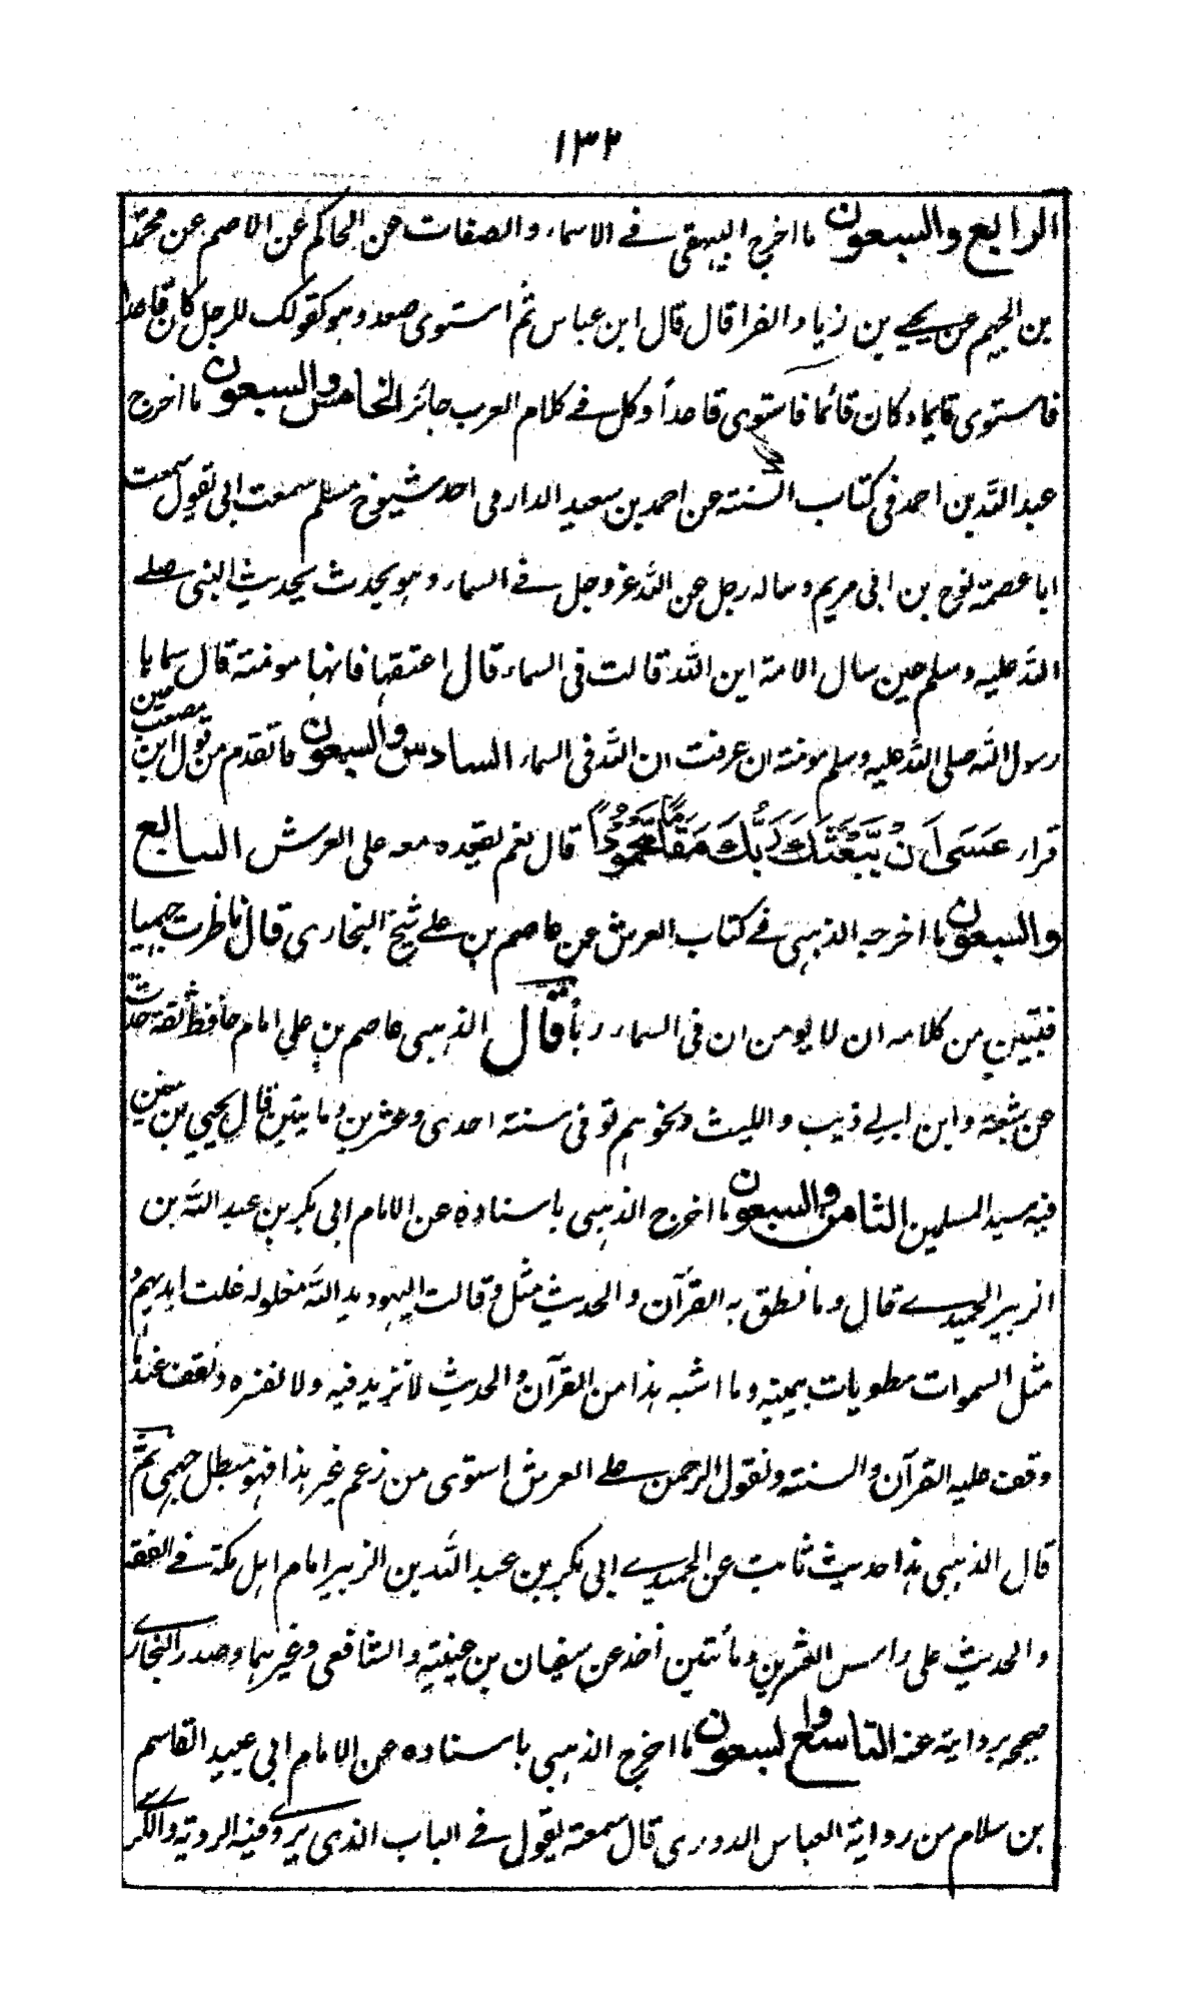 ١٣٢
الرابع والسبعون ما اخرج البيهقى فى الاسماء والصفات عن الحاكم عن الاصم عن محمد
بن الجهم عن يحيى بن زياد الفرا قال قال ابن عباس ثم استوى صعد وهو كقولك للرجل كان قاعدا
فاستوى قايما وكان قائما فاستوى قاعداً وكل فى كلام العرب جائز الخامس والسبعون ما اخرج
عبد الله بن احمد فى كتاب السنته عن احمد بن سعيد الدارمى احد شيوخ مسلم سمعت ابى يقول سمعت
ابا عصمة نوح بن ابى مريم وساله رجل عن الله عز وجل فى السماء وهو يحدث يحديث النبى صلى
الله عليه وسلم حين سال الامة اين الله قالت فى السماء قال اعتقها فانها مومنة قال سماها
رسول الله صلى الله عليه وسلم مومنة ان عرفت ان الله فى السماء السادس والسبعون ما تقدم من قول ابن مصعب حين
قرار عَسَى اَنْ يَّبْعَثَكَ رَبُّكَ مَقَامًا مَّحْمُوْدًا قال نعم يقعده معه على العرش السابع
والسبعون ما اخرجه الذهبى فى كتاب العرش عن عاصم بن على شيخ البخارى قال ناظرت جهميا
فتبين من كلامه ان لا يومن ان فى السماء رباً قال الذهبى عاصم بن على امام حافظ ثقة حدث
عن شعبة وابن ابى ذيب والليث ونحوهم توفى سنته احدى وعشرين ومايتين قال يحيى بن معين
فيه سيد المسلمين الثامن والسبعون ما اخرج الذهبى باسناده عن الامام ابى بكر بن عبد الله بن
الزبير الحميدى قال وما نطق به القرآن والحديث مثل وقالت اليهود يد الله مغلولة غلت ايديهم و
مثل السموات مطويات بيمينه وما اشبه هذا من القرآن والحديث لا نزيد فيه ولا نفسره ونقف عند ما
وقف عليه القرآن والسنته ونقول الرحمن على العرش استوى من زعم غير هذا فهو مبطل جهمى ثم
قال الذهبى هذا حديث ثابت عن الحميدى ابى بكر بن عبد الله بن الزبير امام اهل مكة فى الفقه
والحديث على راس العشرين ومأتين اخذ عن سفيان بن عيينة والشافعى وغيرهما وصدر البخارى
صحيحه برواية عنه التاسع والسبعون ما اخرج الذهبى باسناده عن الامام ابى عبيد القاسم
بن سلام من رواية العباس الدورى قال سمعته يقول فى الباب الذى يروى فيه الروية والكرسى